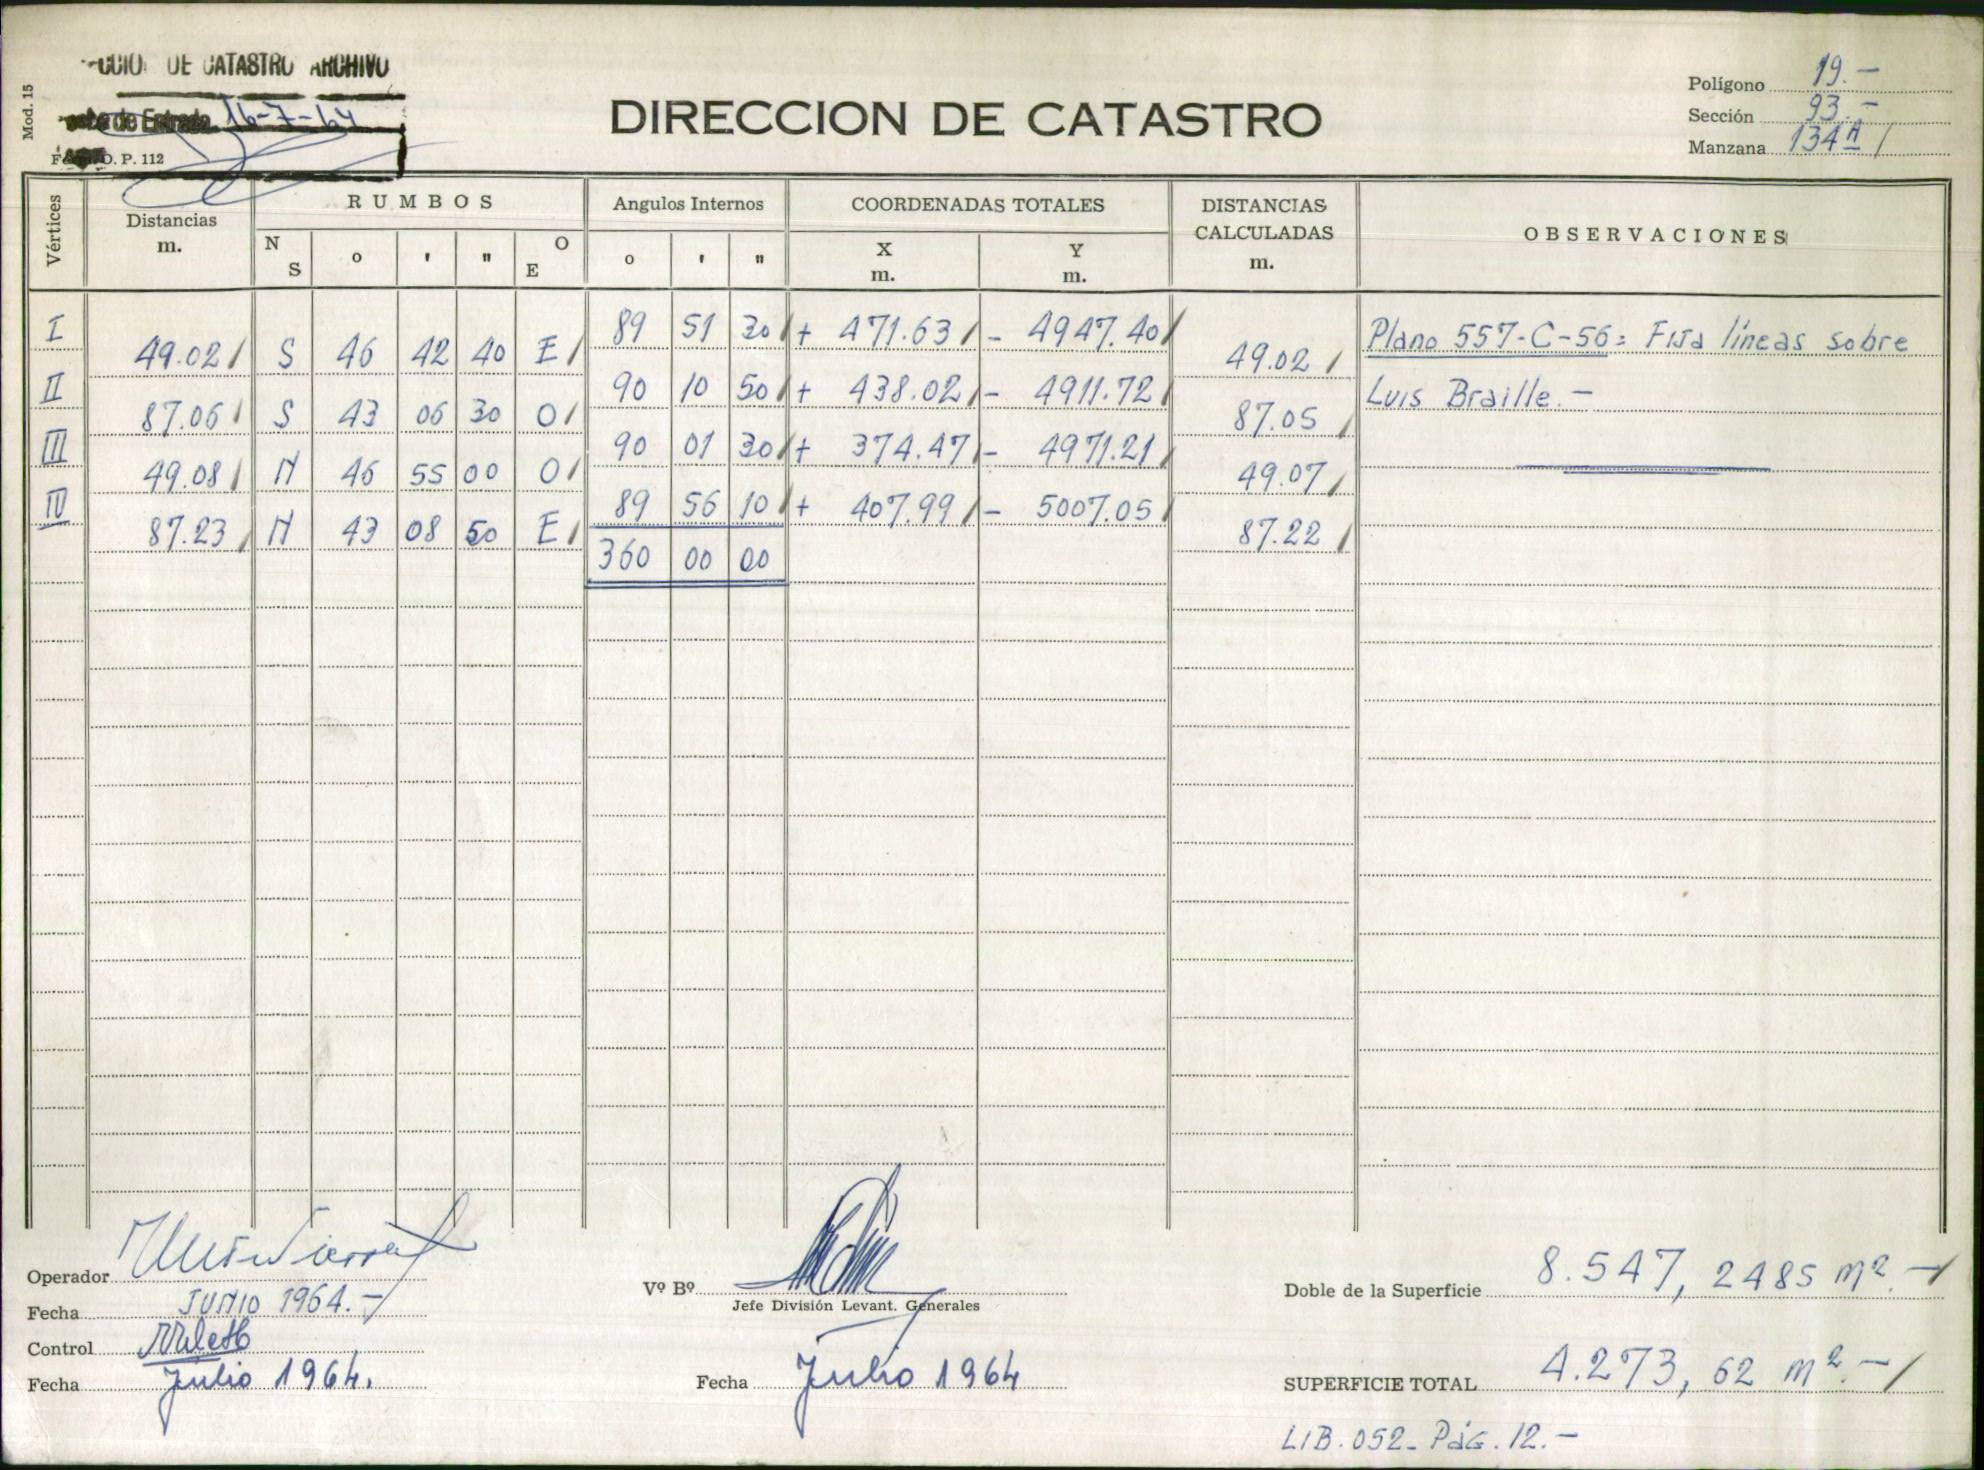 DE CATASTRO ARCHIVO
de Entrada 16-7-64
Mod. 15
O. P. 112
DIRECCION DE CATASTRO
Polígono 19.-
Sección 93.-
Manzana 134A /
Vértices
Distancias m.
RUMBOS
N S ° ' " O E
Angulos Internos
° ' "
COORDENADAS TOTALES
X m. Y m.
DISTANCIAS CALCULADAS m.
OBSERVACIONES
I 89 51 30 + 471.63 - 4947.40
49.02 S 46 42 40 E 49.02
II 90 10 50 + 438.02 - 4911.72
87.06 S 43 06 30 O 87.05
III 90 01 30 + 374.47 - 4971.21
49.08 N 46 55 00 O 49.07
IV 89 56 10 + 407.99 - 5007.05
87.23 N 43 08 50 E 87.22
360 00 00
Plano 557-C-56: Fija líneas sobre
Luis Braille.-
Operador
Fecha JUNIO 1964.-
Control
Fecha Julio 1964.
Vº Bº
Jefe División Levant. Generales
Fecha Julio 1964
Doble de la Superficie 8.547,2485 m².-
SUPERFICIE TOTAL 4.273,62 m².-
LIB. 052- PáG. 12.-